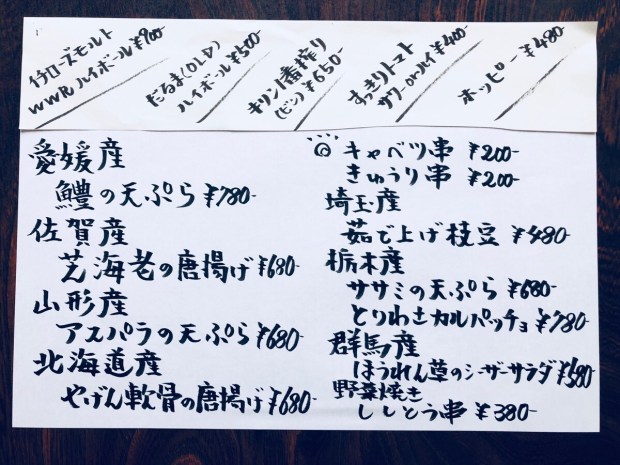 イチローズモルト
WWRハイボール ¥900-
だるま(OLD)
ハイボール ¥500-
キリン一番搾り
(ビン) ¥650-
すっきりトマト
サワーorハイ ¥400-
ホッピー ¥480-
愛媛産
鱧の天ぷら ¥780-
佐賀産
芝海老の唐揚げ ¥680-
山形産
アスパラの天ぷら ¥680-
北海道産
やげん軟骨の唐揚げ ¥680-
◎キャベツ串 ¥200-
きゅうり串 ¥200-
埼玉産
茹で上げ枝豆 ¥480-
栃木産
ササミの天ぷら ¥680-
とりわさカルパッチョ ¥780-
群馬産
ほうれん草のシーザーサラダ ¥580
野菜焼き
ししとう串 ¥380-